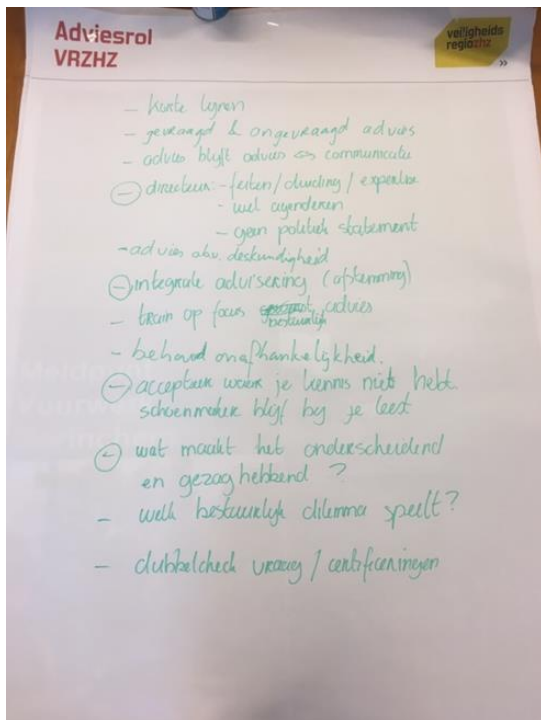 Adviesrol
VRZHZ
veiligheids
regiozhz
»
- korte lijnen
- gevraagd & ongevraagd advies
- advies blijft advies ⇔ communicatie
- directeur: - feiten / duiding / expertise
- wel agenderen
- geen politiek statement
- advies obv. deskundigheid
- integrale advisering (afstemming)
- train op focus bestuurlijk advies
- behoud onafhankelijkheid.
- accepteer waar je kennis niet hebt.
schoenmaker blijf bij je leest
- wat maakt het onderscheidend
en gezaghebbend ?
- welk bestuurlijk dilemma speelt?
- dubbelcheck vraag /